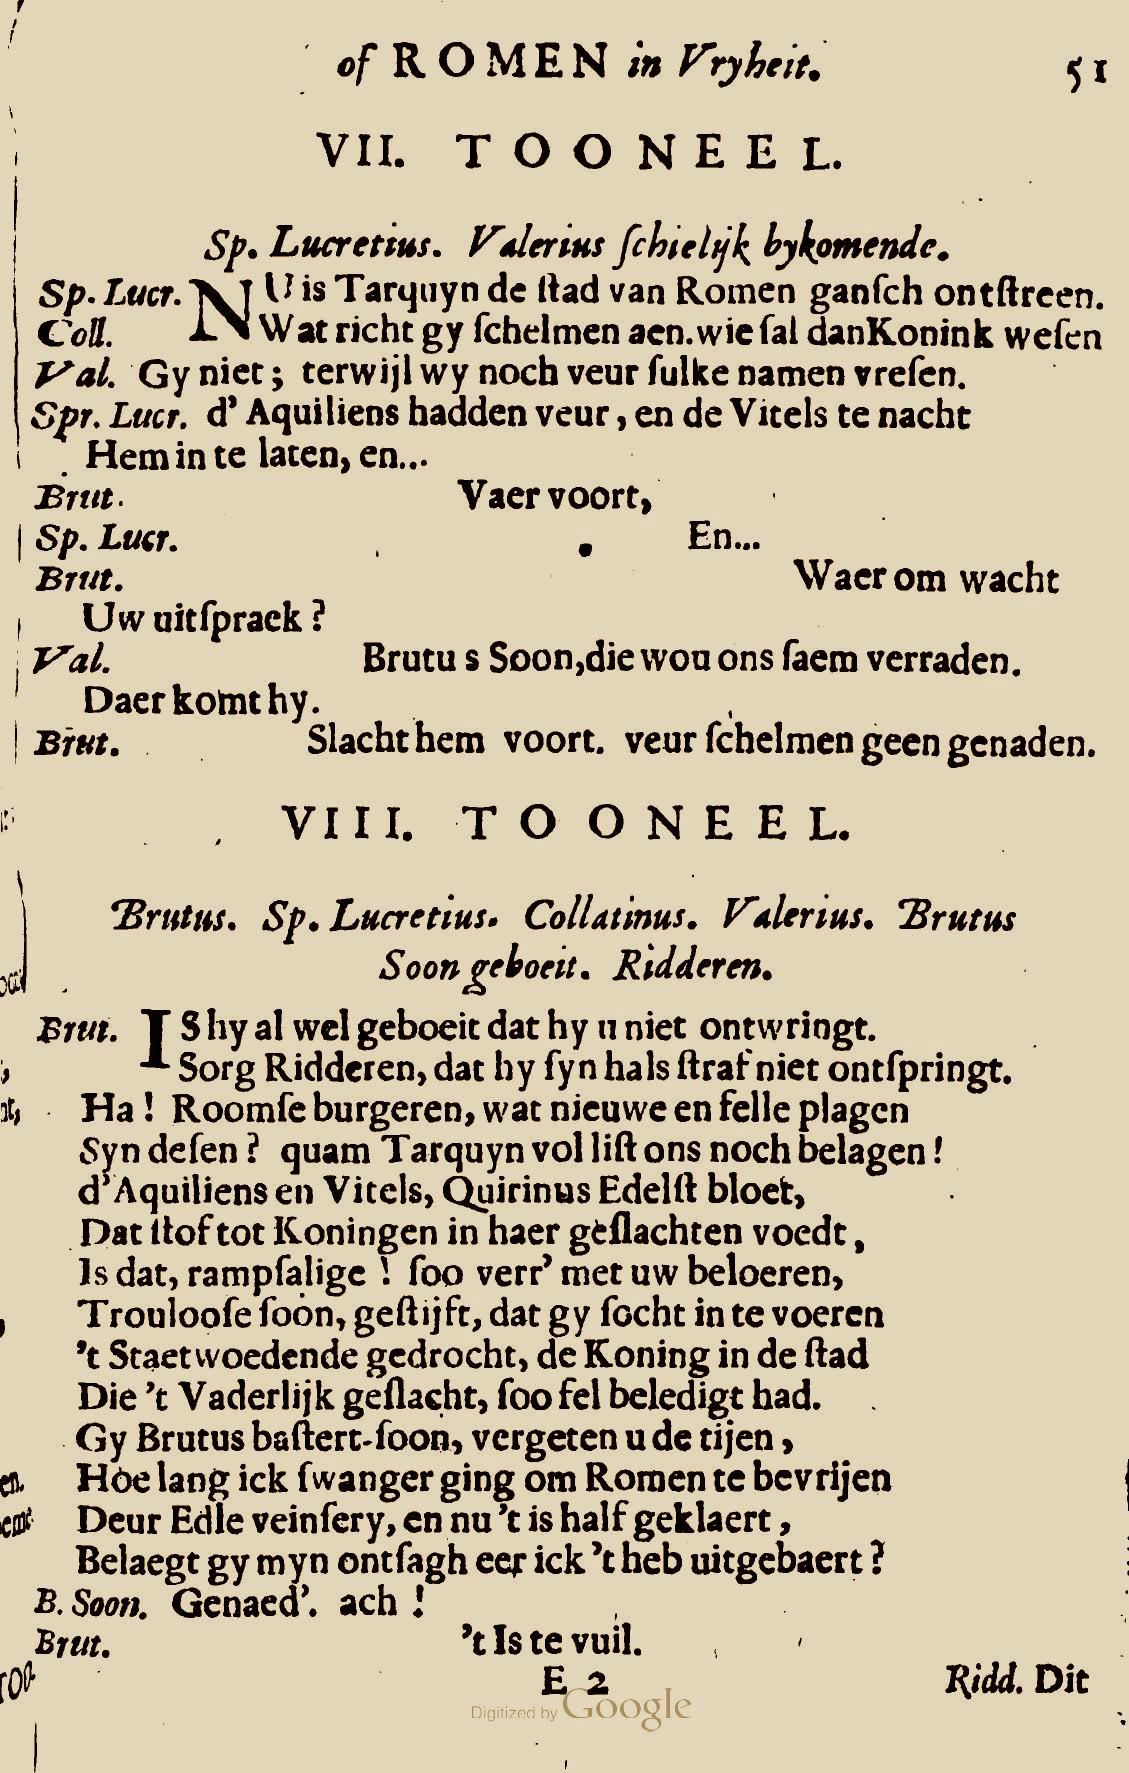 of ROMEN in Vryheit. 51
VII. TOONEEL.
Sp. Lucretius. Valerius ſchielijk bykomende.
Sp. Lucr. NU is Tarquyn de ſtad van Romen ganſch ontſtreen.
Coll. Wat richt gy ſchelmen aen. wie ſal dan Konink weſen
Val. Gy niet; terwijl wy noch veur ſulke namen vreſen.
Spr. Lucr. d' Aquiliens hadden veur, en de Vitels te nacht
Hem in te laten, en...
Brut. Vaer voort,
Sp. Lucr. En...
Brut. Waer om wacht
Uw uitſpraek?
Val. Brutu s Soon, die wou ons ſaem verraden.
Daer komt hy.
Brut. Slacht hem voort. veur ſchelmen geen genaden.
VIII. TOONEEL.
Brutus. Sp. Lucretius. Collatinus. Valerius. Brutus
Soon geboeit. Ridderen.
Brut. IS hy al wel geboeit dat hy u niet ontwringt.
Sorg Ridderen, dat hy ſyn hals ſtraf niet ontſpringt.
Ha! Roomſe burgeren, wat nieuwe en felle plagen
Syn deſen? quam Tarquyn vol liſt ons noch belagen!
d'Aquiliens en Vitels, Quirinus Edelſt bloet,
Dat ſtof tot Koningen in haer geſlachten voedt,
Is dat, rampſalige! ſoo verr' met uw beloeren,
Trouloofe ſoon, geſtijft, dat gy ſocht in te voeren
't Staetwoedende gedrocht, de Koning in de ſtad
Die 't Vaderlijk geſlacht, ſoo fel beledigt had.
Gy Brutus baſtert-ſoon, vergeten u de tijen,
Hoe lang ick ſwanger ging om Romen te bevrijen
Deur Edle veinſery, en nu 't is half geklaert,
Belaegt gy myn ontſagh eer ick 't heb uitgebaert?
B. Soon. Genaed'. ach!
Brut. 't Is te vuil.
E 2 Ridd. Dit
Digitized by Google